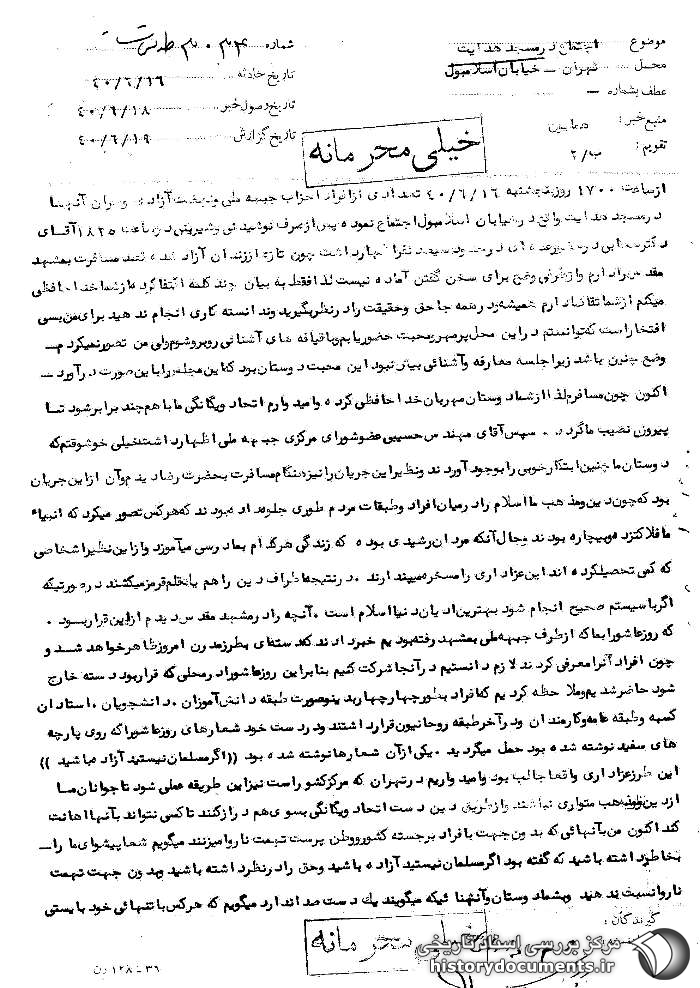 موضوع اجتماع در مسجد هدایت
محل تهران – خیابان اسلامبول
عطف بشماره —
منبع خبر:
تقویم: ب/۲
شماره ۳۰۳۴
تاریخ حادثه ۴۰/۶/۱۶
تاریخ وصول خبر ۴۰/۶/۱۸
تاریخ گزارش ۴۰/۶/۱۹
خیلی محرمانه
از ساعت ۱۷۰۰ روز پنجشنبه ۴۰/۶/۱۶ تعدادی از افراد احزاب جبهه ملی و نهضت آزادی و سران آنها
در مسجد هدایت واقع در خیابان اسلامبول اجتماع نموده پس از صرف نوشیدنی و شیرینی در ساعت ۱۸۲۵ آقای
دکتر سحابی در حضور عده ای در حدود سیصد نفر اظهار داشت چون تازه از زندان آزاد شده قصد مسافرت بمشهد
مقدس را دارم و از طرفی وضع برای سخن گفتن آماده نیست لذا فقط به بیان چند کلمه اکتفا کرده از شما خداحافظی
میکنم از شما تقاضا دارم همیشه و در همه جا حق و حقیقت را در نظر بگیرید و ندانسته کاری انجام ندهید برای من بسی
افتخار است که توانستم در این محل پر مهر و محبت حضور یابم و با قیافه های آشنائی روبرو شوم ولی من تصور نمیکردم —
وضع چنین باشد زیرا جلسه معارفه و آشنائی بیش نبود این محبت دوستان بود که این مجلس را باین صورت درآورد —
اکنون چون مسافرم لذا از شما دوستان مهربان خداحافظی کرده و امیدوارم اتحاد و یگانگی ما با هم چند برابر شود تا
پیروزی نصیب ما گردد . سپس آقای مهندس حسیبی عضو شورای مرکزی جبهه ملی اظهار داشتند خیلی خوشوقتم که
دوستان ما چنین ابتکار خوبی را بوجود آوردند و نظیر این جریان را نیز هنگام مسافرت بحضرت رضا دیدم و آن از این جریان
بود که چون دین و مذهب ما اسلام را در میان افراد و طبقات مردم طوری جلوه داده بودند که هر کس تصور میکرد که انبیاء
ما فلاکت زده و بیچاره بودند و حال آنکه مردان رشیدی بوده که زندگی هر کدام بما درسی میآموزد و از این نظیر اشخاصی
که کمی تحصیل کرده اند این عزاداری را مسخره میپندارند . در نتیجه اطراف دین را هم با یک قلم قرمز میکشند در صورتیکه
اگر با سیستم صحیح انجام شود بهترین ادیان دنیا اسلام است . آنچه را در مشهد مقدس دیدم از این قرار بود .
که روز عاشورا ما که از طرف جبهه ملی بمشهد رفته بودیم خبر دادند که دسته ای بطرز مدرن امروز ظاهر خواهد شد و
چون افراد آنرا معرفی کردند لازم دانستیم در آنجا شرکت کنیم بنابراین روز عاشورا در محلی که قرار بود دسته خارج
شود حاضر شدیم و ملاحظه کردیم که افراد بطور چهار چهار بدینصورت طبقه دانش آموزان . دانشجویان . استادان
کسبه و طبقه عامه و کارمندان و در آخر طبقه روحانیون قرار داشتند و در دست خود شعارهای روز عاشورا که روی پارچه
های سفید نوشته شده بود حمل میگردید . یکی از آن شعارها نوشته شده بود ((اگر مسلمان نیستید آزاده باشید ))
این طرز عزاداری واقعا جالب بود و امیدواریم در تهران که مرکز کشور است نیز این طریقه عملی شود تا جوانان ما
از دین و مذهب متواری نباشند و از طریق دین دست اتحاد و یگانگی بسوی هم دراز کنند تا کسی نتواند بآنها اهانت
کند اکنون من بآنهائی که بدون جهت با افراد برجسته کشور و وطن پرست تهمت ناروا میزنند میگویم شما پیشوای ما را —
بخاطر داشته باشید که گفته بود اگر مسلمان نیستید آزاده باشید و حق را در نظر داشته باشید و بدون جهت تهمت
ناروا نسبت ندهید و بشما دوستان و آنهائیکه میگویند یک دست صدا ندارد میگویم که هر کس با تنهائی خود بایستی
گیرندگان:
خیلی محرمانه
۳۶ – ۱۲۸ ن
مرکز بررسی اسناد تاریخی
historydocuments.ir